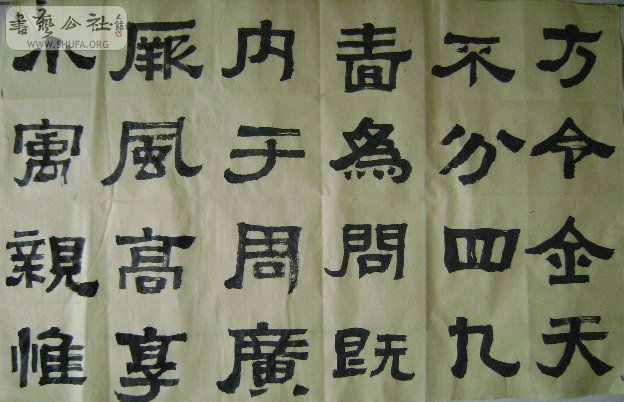 方令金天
不分四九
為問既
内于周廣
厥風高享
寓親惟
書藝公社
WWW.SHUFA.ORG